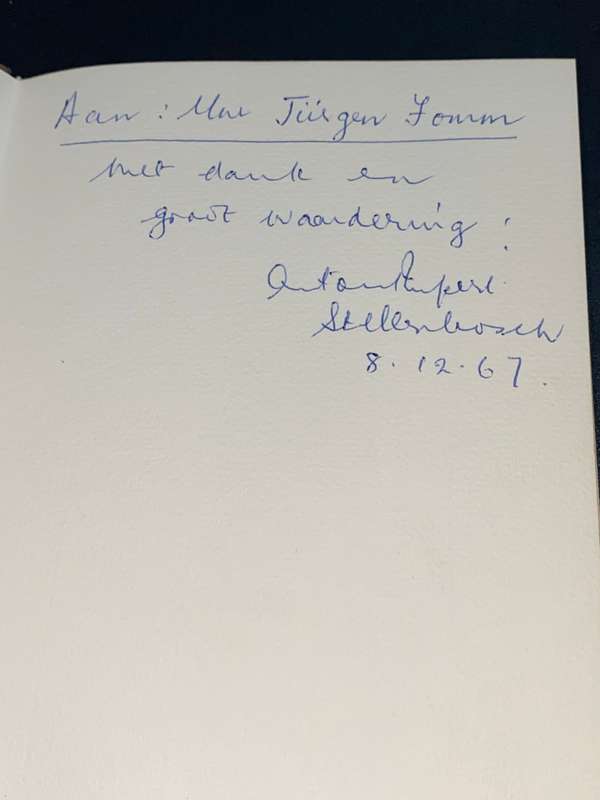 Aan : Mnr Jürgen Fomm
met dank en
groot waardering :
Anton Rupert
Stellenbosch
8.12.67.